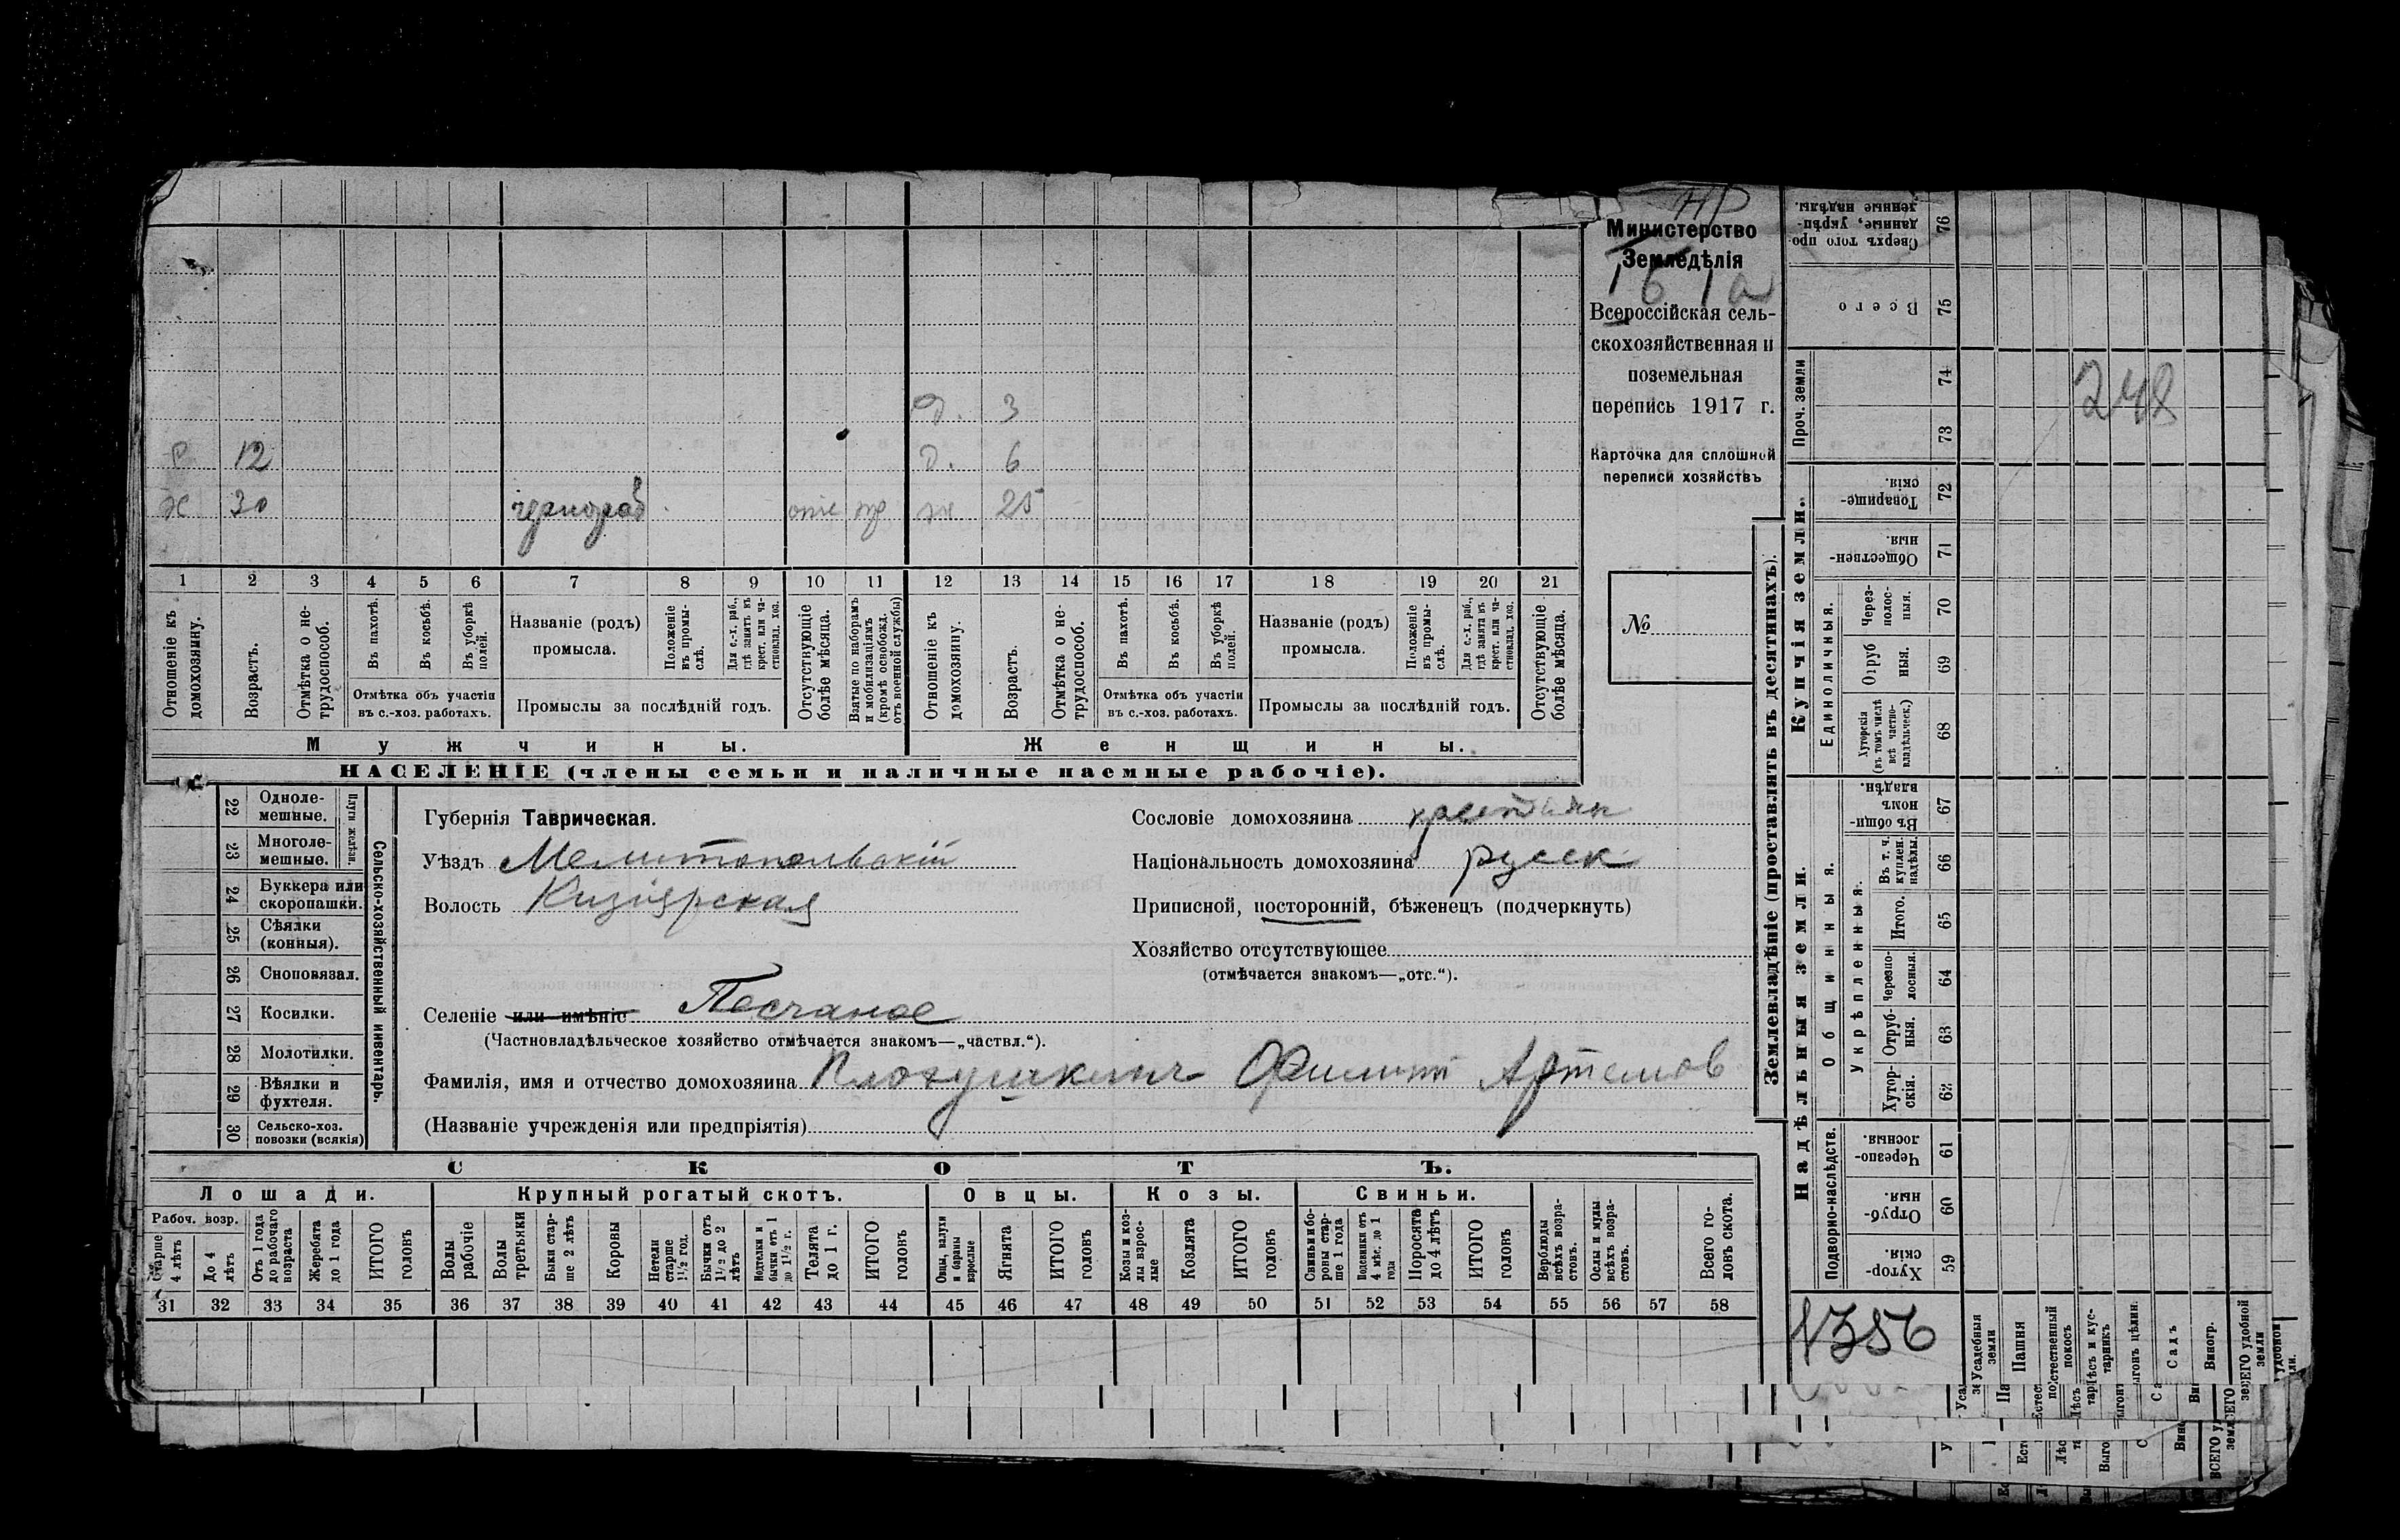 НР
Министерство
Земледѣлія
Всероссійская сель-
скохозяйственная и
поземельная
перепись 1917 г.
Карточка для сплошной
переписи хозяйствъ
№
д. 3
12 д. 6
х 30 чернораб отс пр ж 25
1 2 3 4 5 6 7 8 9 10 11 12 13 14 15 16 17 18 19 20 21
Отношеніе къ домохозяину.
Возрастъ.
Отмѣтка о не-трудоспособ.
Въ пахотѣ.
Въ косьбѣ.
Въ уборкѣ полей.
Отмѣтка объ участіи
въ с.-хоз. работахъ.
Названіе (родъ)
промысла.
Положеніе въ промы-слѣ.
Для с.-х. раб., гдѣ занятъ въ крест. или ча-стновлад. хоз.
Промыслы за послѣдній годъ.
Отсутствующіе болѣе мѣсяца.
Взятые по наборамъ и мобилизаціямъ (кромѣ освобожд. отъ военной службы)
Отношеніе къ домохозяину.
Возрастъ.
Отмѣтка о не-трудоспособ.
Въ пахотѣ.
Въ косьбѣ.
Въ уборкѣ полей.
Отмѣтка объ участіи
въ с.-хоз. работахъ.
Названіе (родъ)
промысла.
Положеніе въ промы-слѣ.
Для с.-х. раб., гдѣ занята въ крест. или ча-стновлад. хоз.
Промыслы за послѣдній годъ.
Отсутствующіе болѣе мѣсяца.
Мужчины. Женщины.
НАСЕЛЕНІЕ (члены семьи и наличные наемные рабочіе).
22 Одноле-мешные.
23 Многоле-мешные.
Плуги желѣзн.
24 Буккера или скоропашки.
25 Сѣялки (конныя).
26 Сноповязал.
27 Косилки.
28 Молотилки.
29 Вѣялки и фухтеля.
30 Сельско-хоз. повозки (всякія)
Сельско-хозяйственный инвентарь.
Губернія Таврическая.
Уѣздъ Мелитопольскій
Волость Кизіярская
Селеніе или имѣніе Песчаное
(Частновладѣльческое хозяйство отмѣчается знакомъ—„частвл.“).
Фамилія, имя и отчество домохозяина Филипп Артемов
(Названіе учрежденія или предпріятія)
Сословіе домохозяина крестьян
Національность домохозяина русск
Приписной, посторонній, бѣженецъ (подчеркнуть)
Хозяйство отсутствующее
(отмѣчается знакомъ—„отс.“).
СКОТЪ.
Лошади. Крупный рогатый скотъ. Овцы. Козы. Свиньи.
Рабоч. возр.
Старше 4 лѣтъ
До 4 лѣтъ
Отъ 1 года до рабочаго возраста
Жеребята до 1 года
ИТОГО головъ
Волы рабочіе
Волы третьяки
Быки стар-ше 2 лѣтъ
Коровы
Нетели старше 1½ год.
Бычки отъ 1½ до 2 лѣтъ
Подтелки и бычки отъ 1 до 1½ г.
Телята до 1 г.
ИТОГО головъ
Овцы, валухи и бараны взрослые
Ягнята
ИТОГО головъ
Козы и коз-лы взрос-лые
Козлята
ИТОГО головъ
Свиньи и бо-ровы стар-ше 1 года
Подсвинки отъ 4 мѣс. до 1 года
Поросята до 4 лѣтъ
ИТОГО головъ
Верблюды всѣхъ возра-стовъ.
Ослы и мулы всѣхъ возра-стовъ.
Всего го-ловъ скота.
31 32 33 34 35 36 37 38 39 40 41 42 43 44 45 46 47 48 49 50 51 52 53 54 55 56 57 58
Землевладѣніе (проставлять въ десятинахъ).
Купчія земли.
Сверхъ того про-данные, укрѣп-ленные надѣлы. 76
Всего 75
Проч. земли 74 73
248
Товарище-скія. 72
Обществен-ныя. 71
Единоличныя.
Через-полос-ныя. 70
Отруб ныя. 69
Хуторскія (въ томъ числѣ всѣ частно-владѣльческ.) 68
Надѣльныя земли.
Общинныя.
Въ общи-номъ владѣн. 67
Укрѣпленныя.
Въ т. ч. куплен. надѣлы. 66
Итого. 65
Черезпо-лосныя. 64
Отруб-ныя. 63
Хутор-скія. 62
Подворно-наслѣдств.
Черезпо-лосныя. 61
Отруб-ныя. 60
Хутор-скія. 59
Усадебныя земли
Пашня
Естественный покосъ
Лѣсъ и кус-тарникъ
Выгонъ цѣлин.
Садъ
Виногр.
ВСЕГО удобной земли